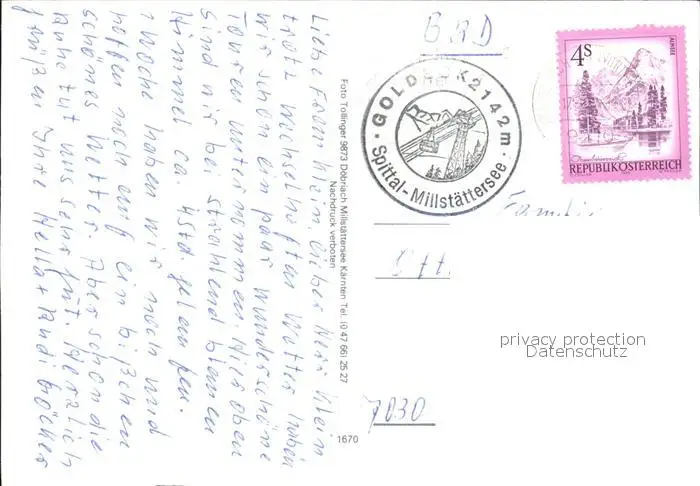 Liebe Frau Klein, lieber Herr Klein
trotz wechselhaften Wetter haben
wir schon ein paar wunderschöne
Touren unternommen. Hier oben
sind wir bei strahlend blauen
Himmel ca. 4 std. gelaufen.
1 Woche haben wir noch und
hoffen noch auf ein bißchen
schönes Wetter. Aber schon die
Ruhe tut uns sehr gut. Herzlich
grüßen Ihre Hella + Rudi
Foto Tollinger 9873 Döbriach Millstättersee Kärnten Tel. (0 47 66) 25 27
Nachdruck verboten
1670
BRD
GOLDECK 2142 m
Spittal-Millstättersee
4S
ALMSEE
REPUBLIK ÖSTERREICH
Familie
7030
privacy protection
Datenschutz